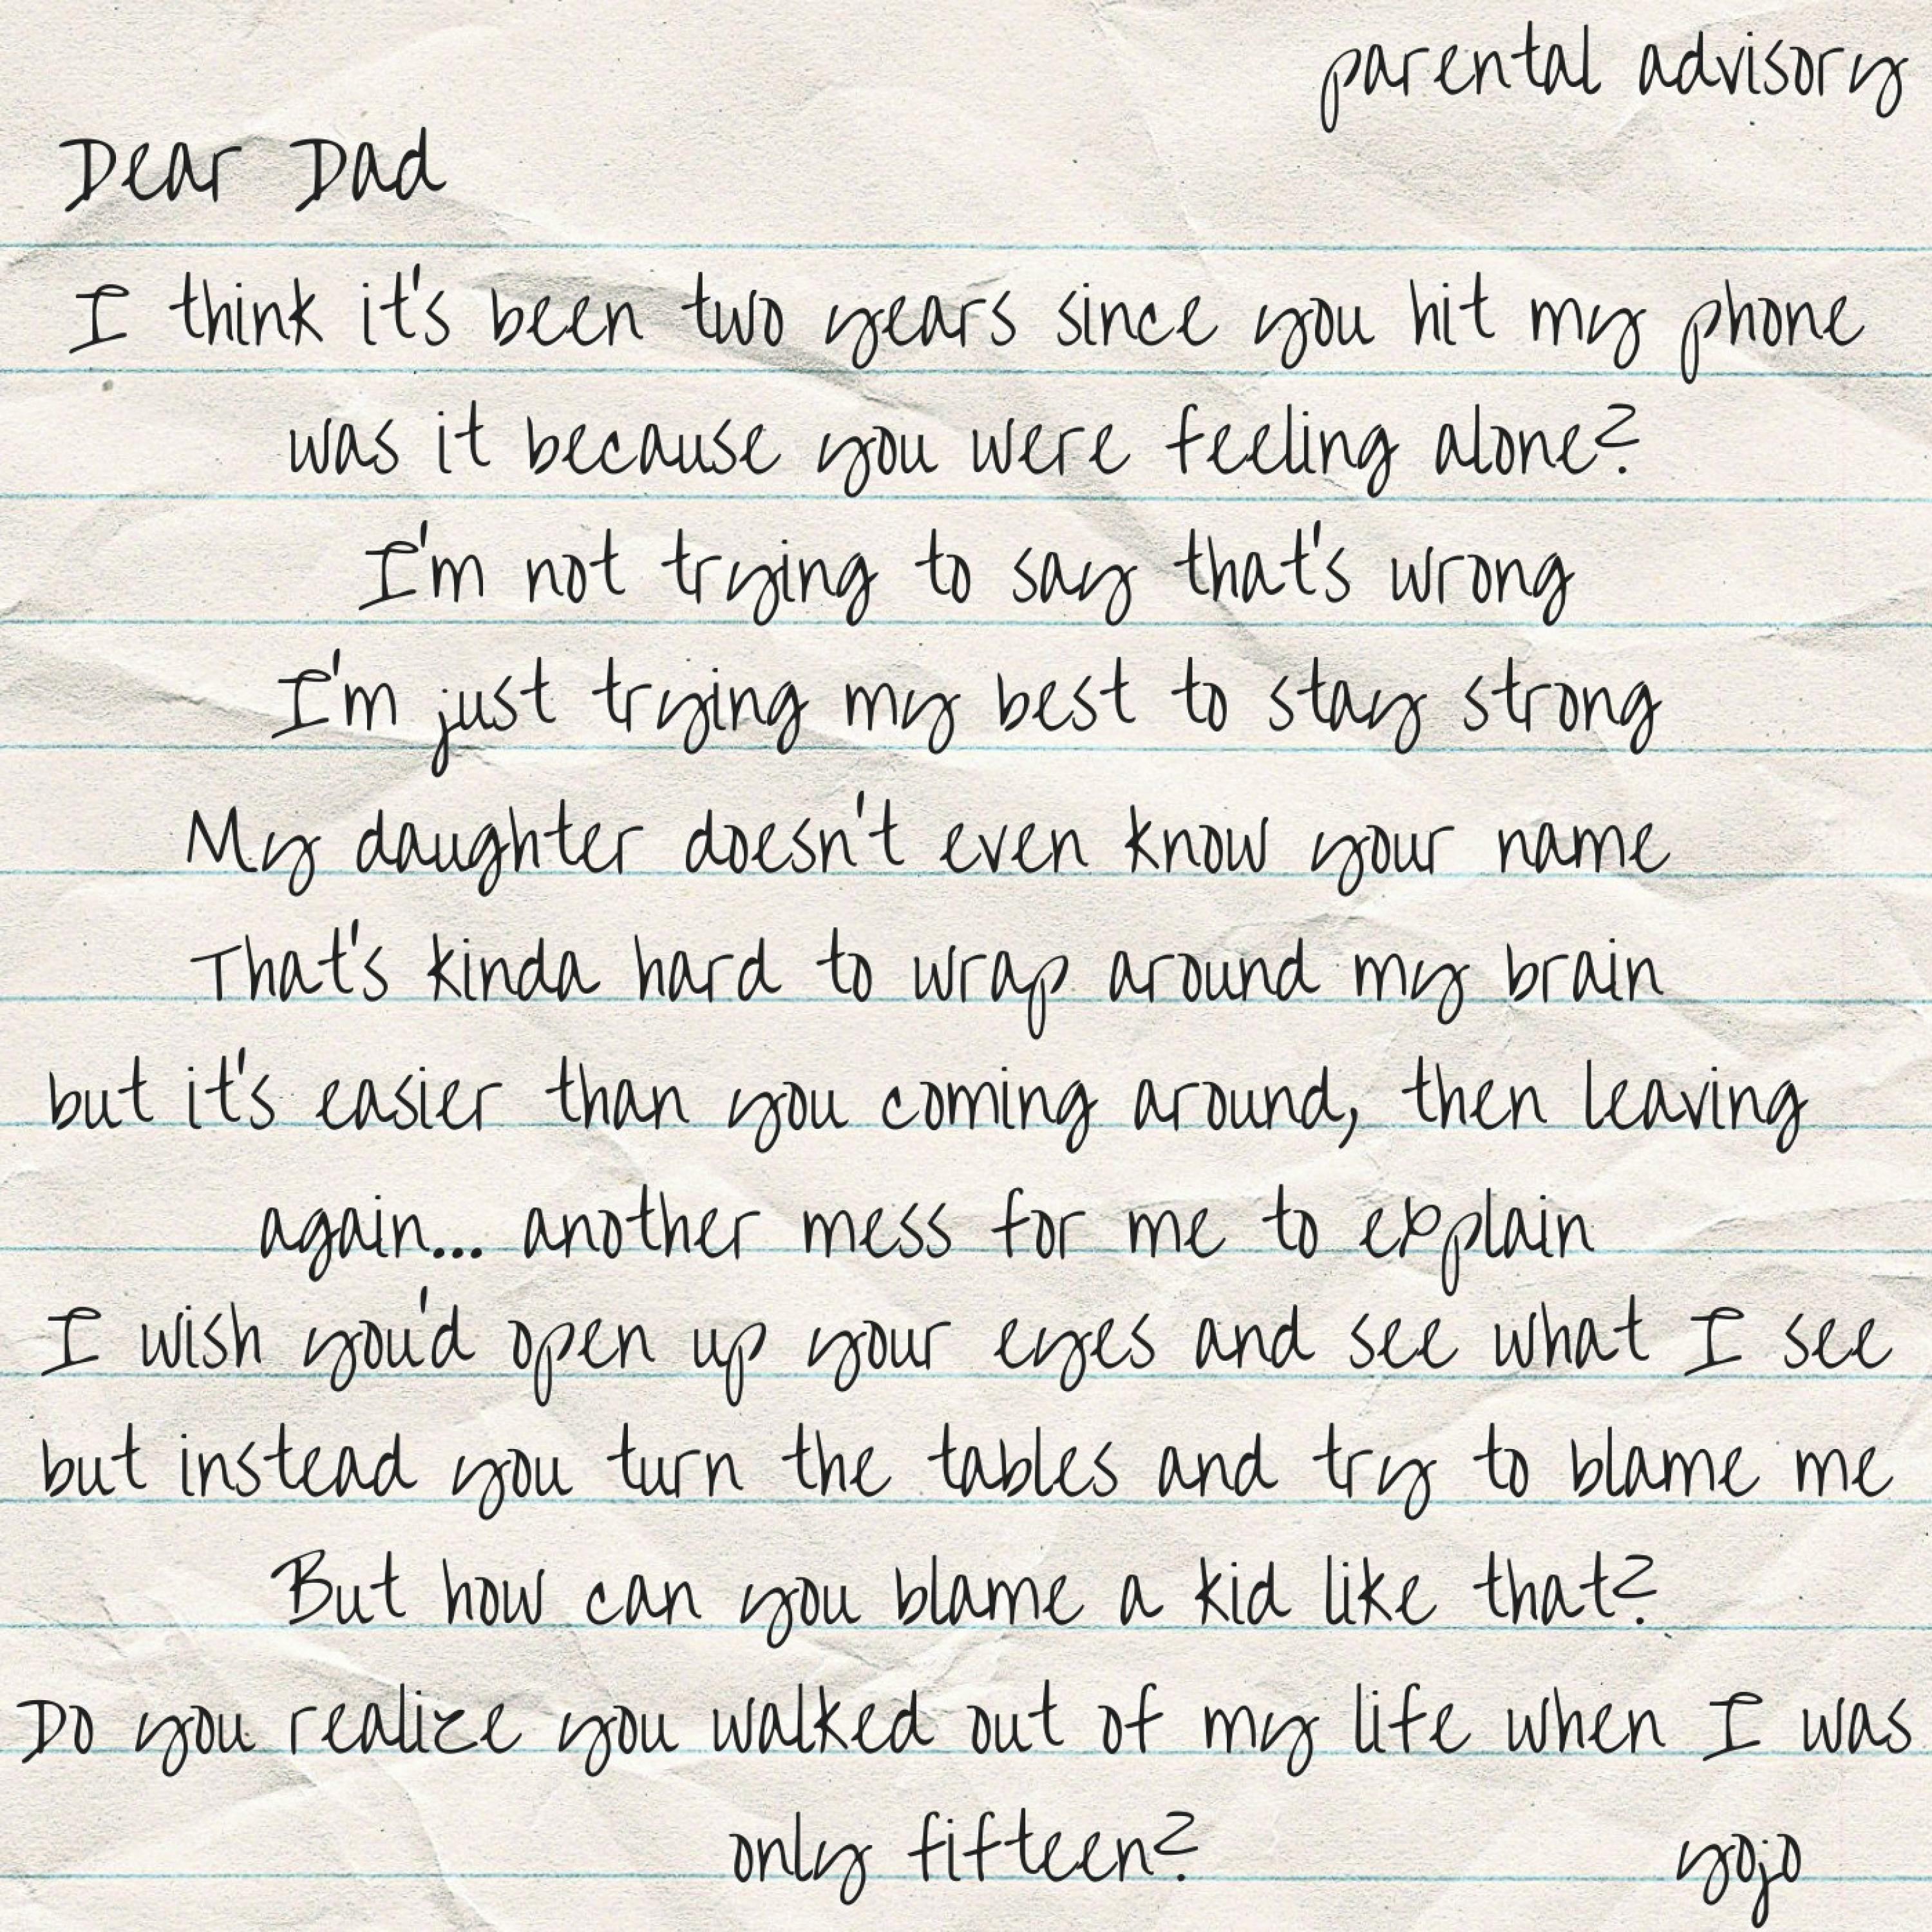 parental advisory
Dear Dad
I think it's been two years since you hit my phone
was it because you were feeling alone?
I'm not trying to say that's wrong
I'm just trying my best to stay strong
My daughter doesn't even know your name
That's kinda hard to wrap around my brain
but it's easier than you coming around, then leaving
again... another mess for me to explain
I wish you'd open up your eyes and see what I see
but instead you turn the tables and try to blame me
But how can you blame a kid like that?
Do you realize you walked out of my life when I was
only fifteen?
yojo